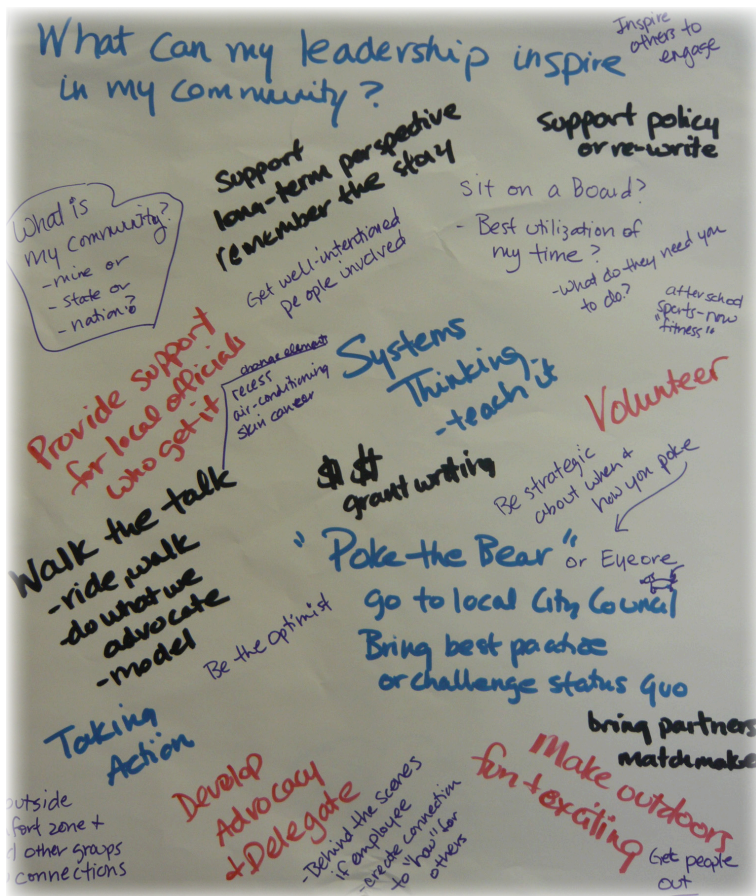 What can my leadership inspire
in my community?
Inspire
others to
engage
Support
long-term perspective
remember the stay
support policy
or re-write
What is
my community?
- mine or
- state or
- nation?
Get well-intentioned
people involved
Sit on a Board?
- Best utilization of
my time?
- what do they need you
to do?
after school
sports - now
"fitness"
Provide support
for local officials
who get it
change element
recess
air-conditioning
skin cancer
Systems
Thinking
- teach it
Volunteer
$ $
grant writing
Be strategic
about when +
how you poke
Walk the talk
- ride, walk
- do what we
advocate
- model
"Poke the Bear" or Eyeore
go to local City Council
Bring best pactice
or challenge status quo
Be the Optimist
Taking
Action
bring partners
matchmake
Develop
Advocacy
+ Delegate
Make outdoors
fun + exciting
outside
fort zone +
other groups
connections
- Behind the scenes
if employee
- create connection
to "how" for
others
Get people
out